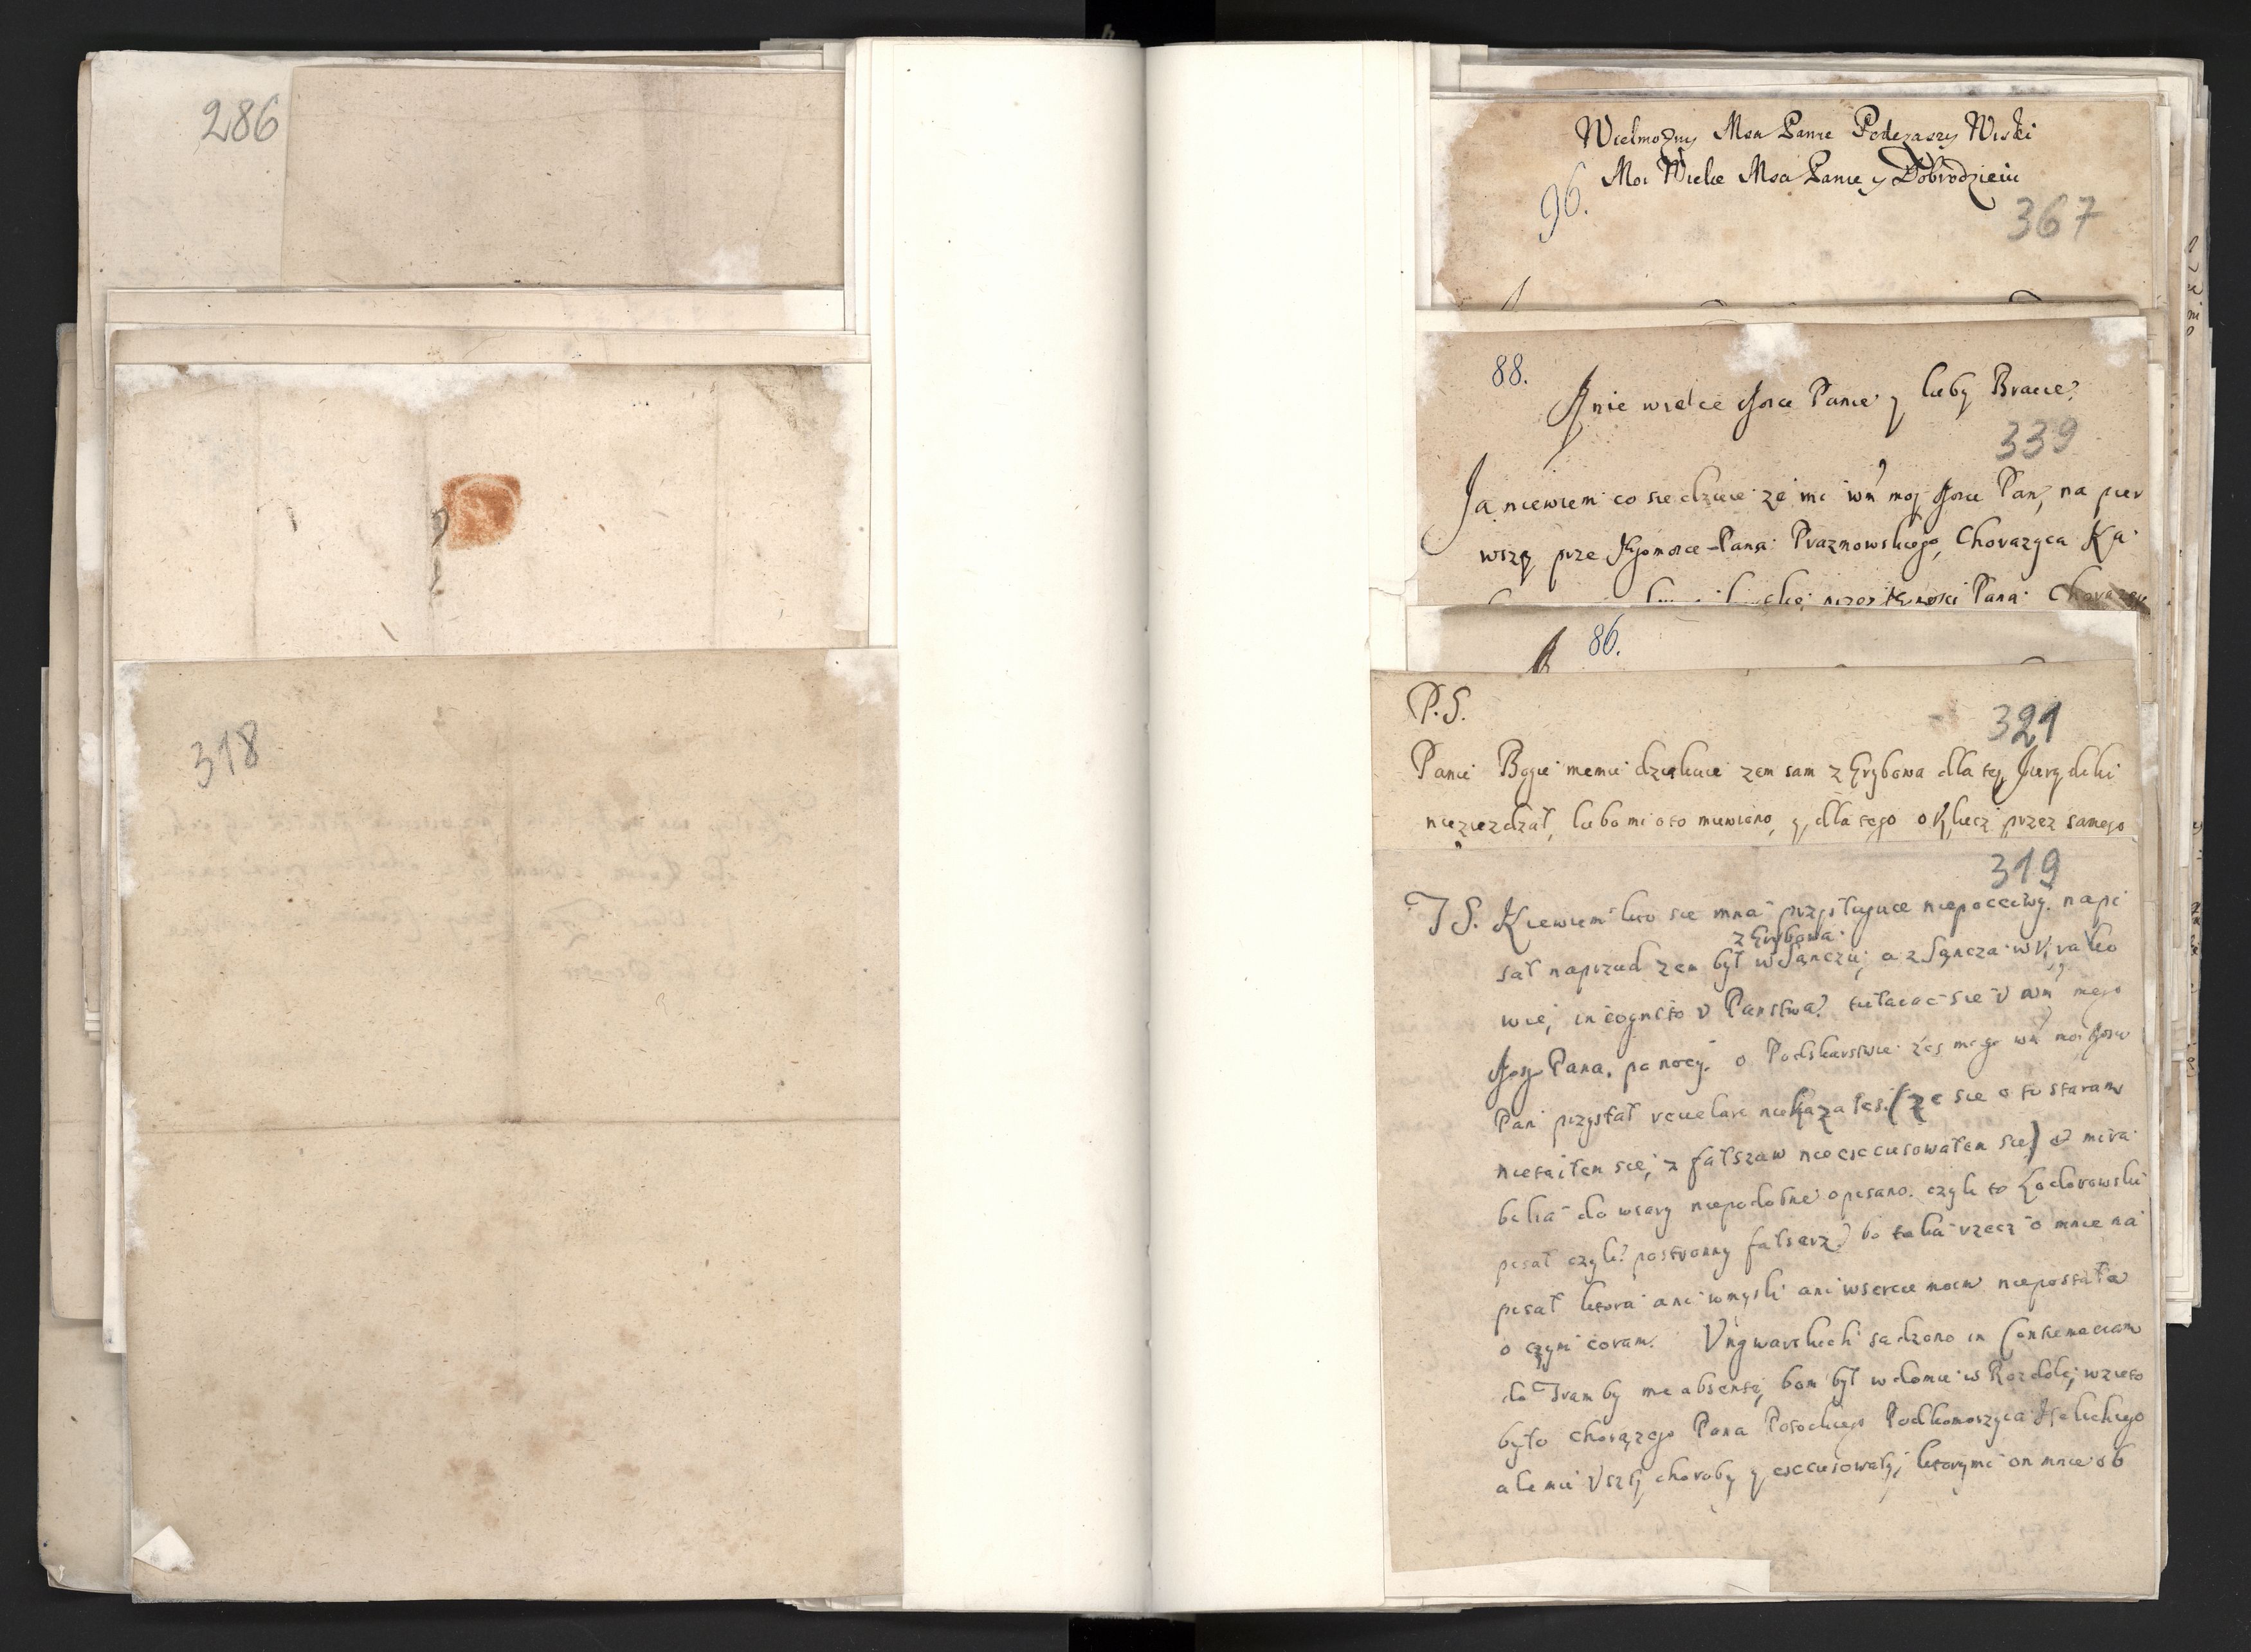 286
318
Wielmozny Msa Panie Podczaszy Wiski
Moi Wielce Msa Panie y Dobrodzieiu
96.
367
88.
wielce Panie y luby Bracie
339
Ja niewiem co sie dzieie ze mi wm moy Pan, na pier
wszą prze Jegomosce Pana Prazmowskiego, Chorazyca Ka
Pana Choraze
86.
P.S.
321
Panu Bogu memu dziekuie zem sam z Grybowa dla tey Jurydiki
nieziezdzał, lubo mi oto muwiono, y dla tego przez samego
319
Niewiem kto sie mna przysługuie niepoccciwy. napi
z Grybowa
sał naprzud zem był w Sączu, a z Sącza w Krako
wie, incognito v Panstwa? tułaiac sie v wm mego
Pana, po nocy. o Podskarstwie zas mego wm moi
Pan przysłał niekazałes. (ze sie o to staram
nietaiłem sie, z fałszaw nieexcusowałem sie) a mira
bilia do wiary niepodobne opisano. czyli to
pisał czyli? postronny fałserz? bo taka rzecz o mnie na
pisał ktora ani w mysli ani w sercu moim niepostała
o czym coram. Vngwarskich sadzono in Contumaciam
do Tramby me absente, bom był w domu w Rozdole, wzieto
było chorązego Pana Potockiego Podkomorzyca Halickiego
ale mu Vszły choroby y excusowały, ktorymi on mnie ob